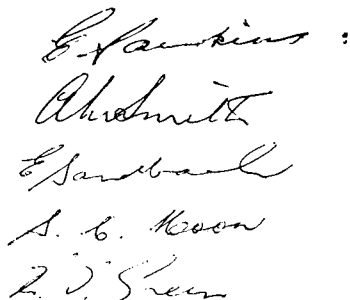 E. Hawkins :
A W Smith
E Sandbach
S. C. Moon
Green